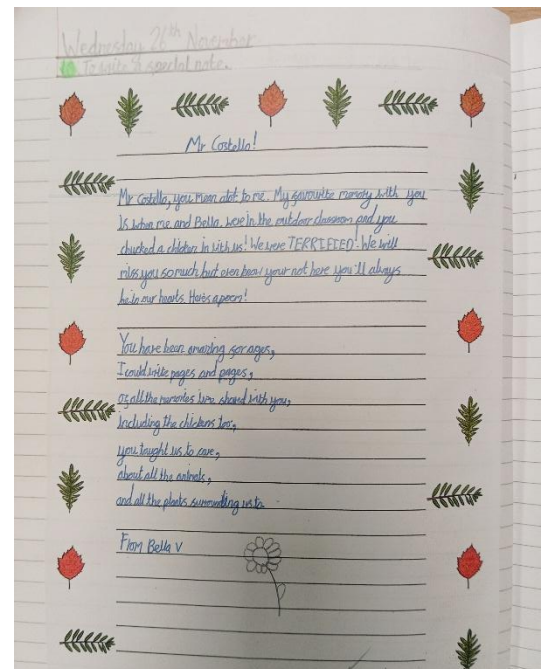 Wednesday 26th November
LO To write a special note.
Mr Costello!
Mr Costello, you mean alot to me. My favourite memory with you
is when me and Bella. were in the outdoor classroom and you
chucked a chicken in with us! We were TERRIFIED! We will
miss you so much but even your not here you'll always
be in our hearts. Heres a poem!
You have been amazing for ages,
I could write pages and pages,
of all the memories ive shared with you,
Including the chickens too,
you taught us to care,
about all the animals,
and all the plants surrounding us to.
From Bella V